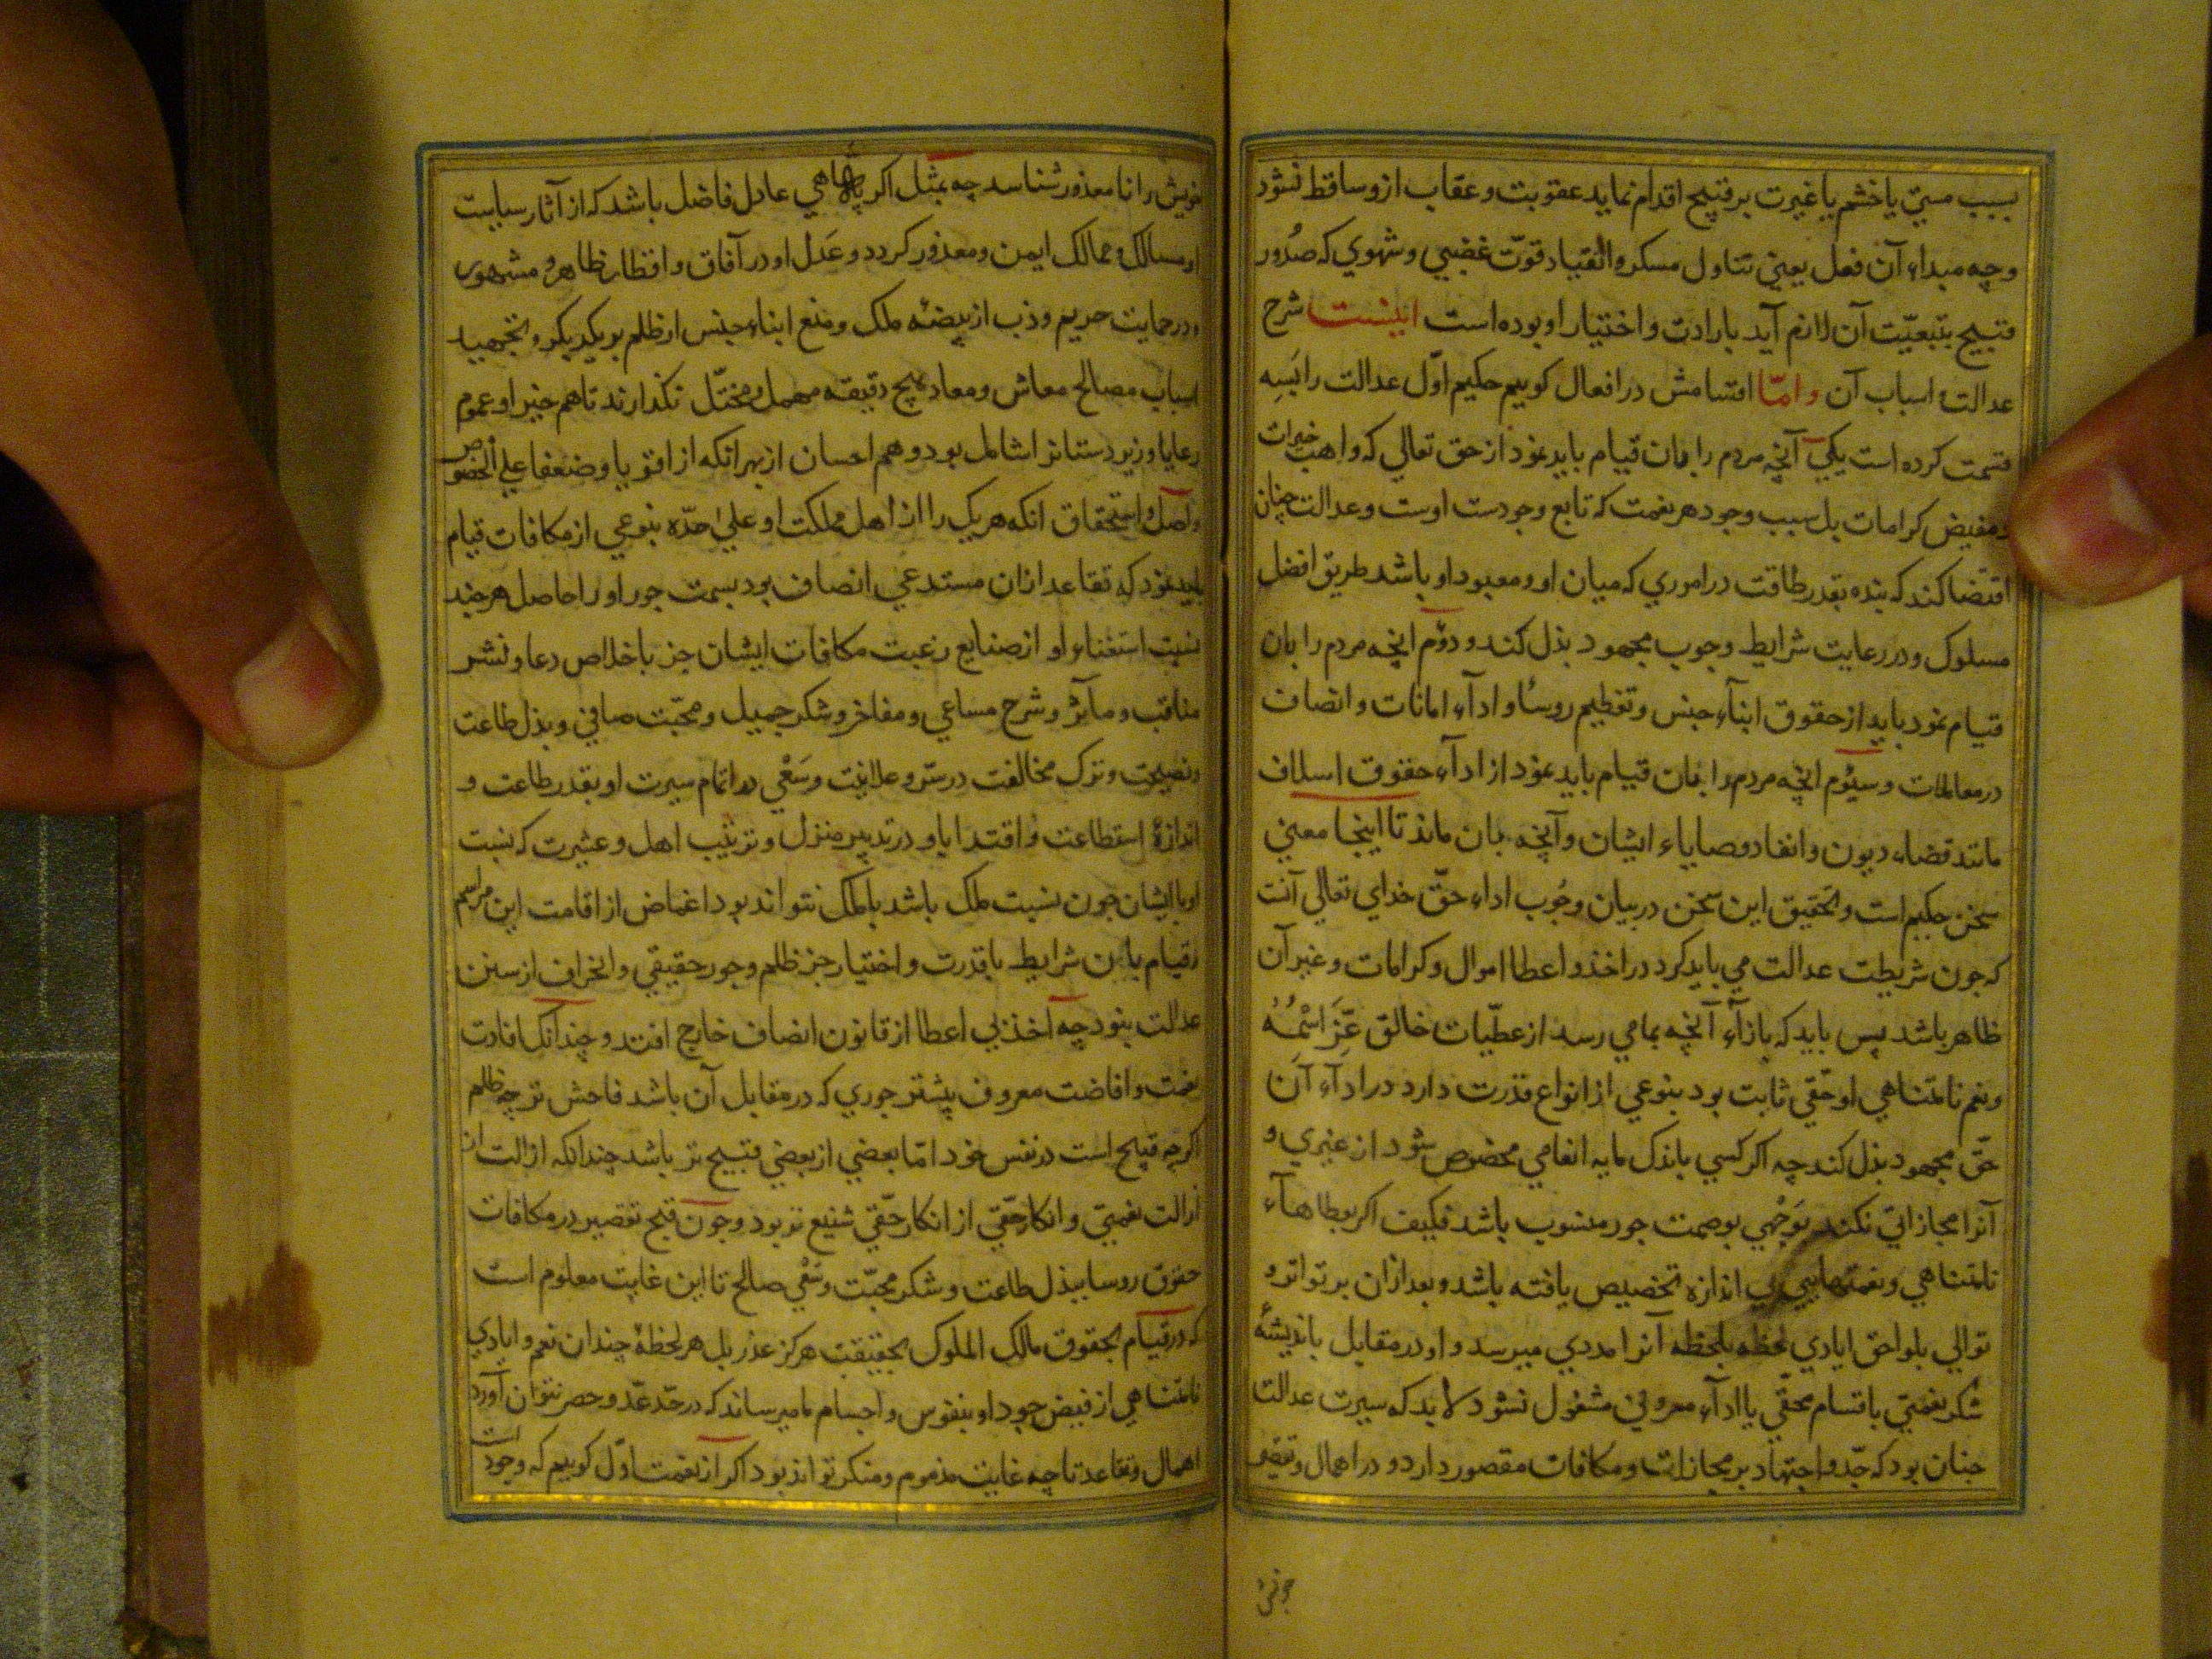 بسبب مستی یا خشم یا غیرت بر قبیح اقدام نماید عقوبت و عقاب ازو ساقط نشود
و چه مبداء آن فعل یعنی تناول مسکر و انقیاد قوّت غضبی و شهوی که صدور
قبیح بتبعیّت آن لازم آید بارادت و اختیار او بوده است اینست شرح
عدالت و اسباب آن و امّا اقسامش در افعال کوییم حکیم اوّل عدالت را بسه
قسمت کرده است یکی آنچه مردم را بدان قیام باید نمود از حق تعالی که واهب خیرات
و مفیض کرامات بل سبب وجود هر نعمت که تابع وجودست اوست و عدالت چنان
اقتضا کند که بنده بقدر طاقت در اموری که میان او و معبود او باشد طریق افضل
مسلوک و در رعایت شرایط وجوب مجهود بذل کند و دوّم انچه مردم را بان
قیام نمود باید از حقوق ابنآء جنس و تعظیم روسا و ادآء امانات و انصاف
در معاملات و سیوم انچه مردم را بدان قیام باید نمود از ادآء حقوق اسلاف
مانند قضاء دیون و انفاد وصایاء ایشان و آنچه بدان ماند تا اینجا معنی
سخن حکیم است و تحقیق این سخن در بیان وجوب اداء حقّ خدای تعالی آنست
که جون شریطت عدالت می باید کرد در اخذ و اعطا اموال و کرامات و غیر آن
ظاهر باشد پس باید که بازآء آنچه بما می رسد از عطیّات خالق عزّ اسمه
و نعم نامتناهی او حقی ثابت بود بنوعی از انواع قدرت دارد در ادآء آن
حقّ مجهود بذل کند چه اکر کسی باندک مایه انعامی مخصوص شود از غیری و
آنرا مجازاتی نکند بوجهی بوصمت جور منسوب باشد فکیف اکر بعطاهآء
نامتناهی و نعمتهایی بی اندازه تخصیص یافته باشد و بعد ازان بر تواتر و
توالی بلواحق ایادی لحظه بلحظه آنرا مددی میرسد و او در مقابل باندیشهٔ
شکر نعمتی یا قسام بحقّی یا ادآء معروفی مشغول نشود لابد که سیرت عدالت
جنان بود که جدّ و اجتهاد بر مجازات و مکافات مقصور دارد و در اهمال و تقصیر
خویش را نا معذور شناسد چه بمثل اکر پادشاهی عادل فاضل باشد که از آثار سیاست
او مسالک و ممالک ایمن و معذور کردد و عدل او در آفاق و اقطار ظاهر و مشهور
و در حمایت حریم و ذب از بیضهٔ ملک و منع ابناء جنس از ظلم بر یکدیکر و تمهید
اسباب مصالح معاش و معاد هیچ دقیقه مهمل و مختل نکذارند تا هم خیر او عموم
رعایا و زیردستانرا شامل بود و هم احسان از بهر انکه از اقویا و ضعفا علی الخصوص
واصل و استحقاق انکه هر یک را از اهل مملکت او علی حدّه بنوعی از مکافات قیام
باید نمود که تقاعد ازان مستدعی انصاف بود بسمت جور او را حاصل هرچند
بسبب استغناء او از صنایع رعیت مکافات ایشان جز باخلاص دعا و نشر
مناقب و مآثر و شرح مساعی و مفاخر و شکر جمیل و محبّت صافی و بذل طاعت
و نصیحت و ترک مخالفت در سرّ و علانیت و سعی در اتمام سیرت او بقدر طاعت و
اندازهٔ استطاعت و اقتدا باو در تدبیر منزل و ترتیب اهل و عشیرت که نسبت
او با ایشان جون نسبت ملک باشد با ملک نتواند بود اغماض از اقامت این مراسم
و قیام باین شرایط با قدرت و اختیار جز ظلم و جور حقیقی و انحراف از سنن
عدالت بنود چه اخذ بی اعطا از قانون انصاف خارج افتد و چندانک افادت
نعمت و افاضت معروف بیشتر جوری که در مقابل آن باشد فاحش تر چه ظلم
اکر چه قبیح است در نفس خود امّا بعضی از بعضی قبیح تر باشد چندانکه ازالت از
ازالت نعمتی و انکار حقّی از انکار حقّی شنیع تر بود و جون قبح تقصیر در مکافات
حقوق روسا ببذل طاعت و شکر محبّت و سعی صالح تا این غایت معلوم است
که در قیام بحقوق مالک الملوک بحقیقت هرکز عذر بل هر لحظهٔ چندان نعم و ایادی
نامتناهی از فیض جود او بنفوس و اجسام ما میرساند که در حدّ عدّ و حصر نتوان آورد
اهمال و تقاعد تا چه غایت مذموم و منکر تواند بود اکر از نعمت اوّل کوییم که وجود است
جونی